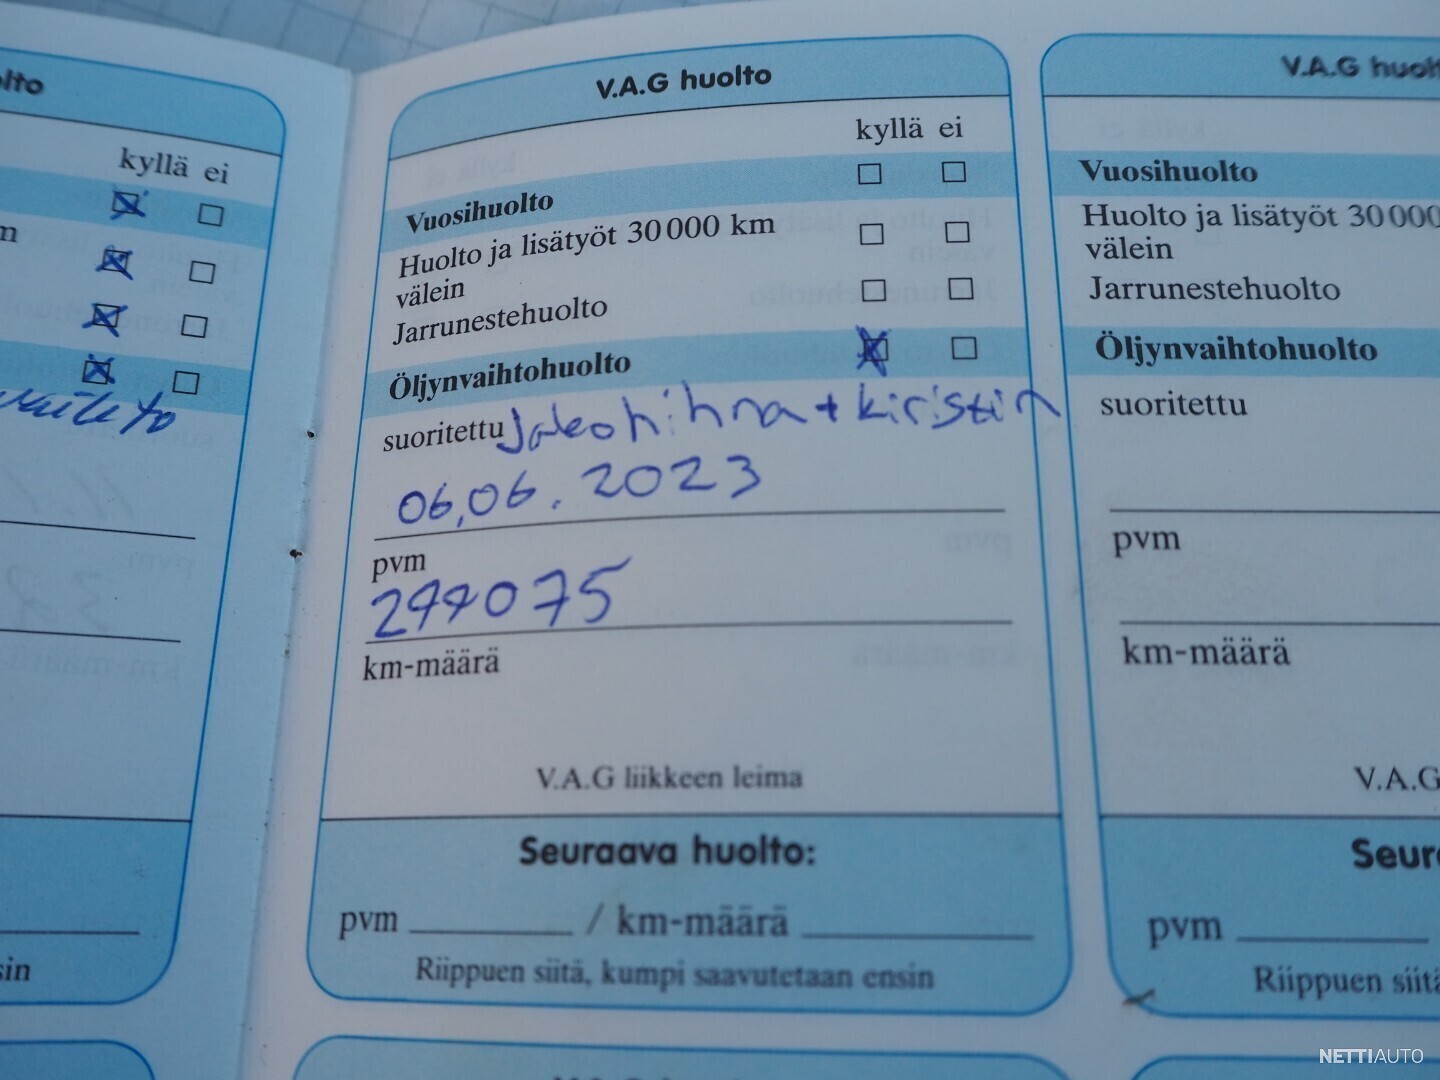 olto
kyllä ei
m
vaihto
sin
V.A.G huolto
kyllä ei
Vuosihuolto
Huolto ja lisätyöt 30 000 km
välein
Jarrunestehuolto
Öljynvaihtohuolto
suoritettu Jakohihna + kiristin
06,06. 2023
pvm
244075
km-määrä
V.A.G liikkeen leima
Seuraava huolto:
pvm / km-määrä
Riippuen siitä, kumpi saavutetaan ensin
V.A.G huolt
Vuosihuolto
Huolto ja lisätyöt 30 000
välein
Jarrunestehuolto
Öljynvaihtohuolto
suoritettu
pvm
km-määrä
V.A.G
Seur
pvm
Riippuen siitä
NETTIAUTO